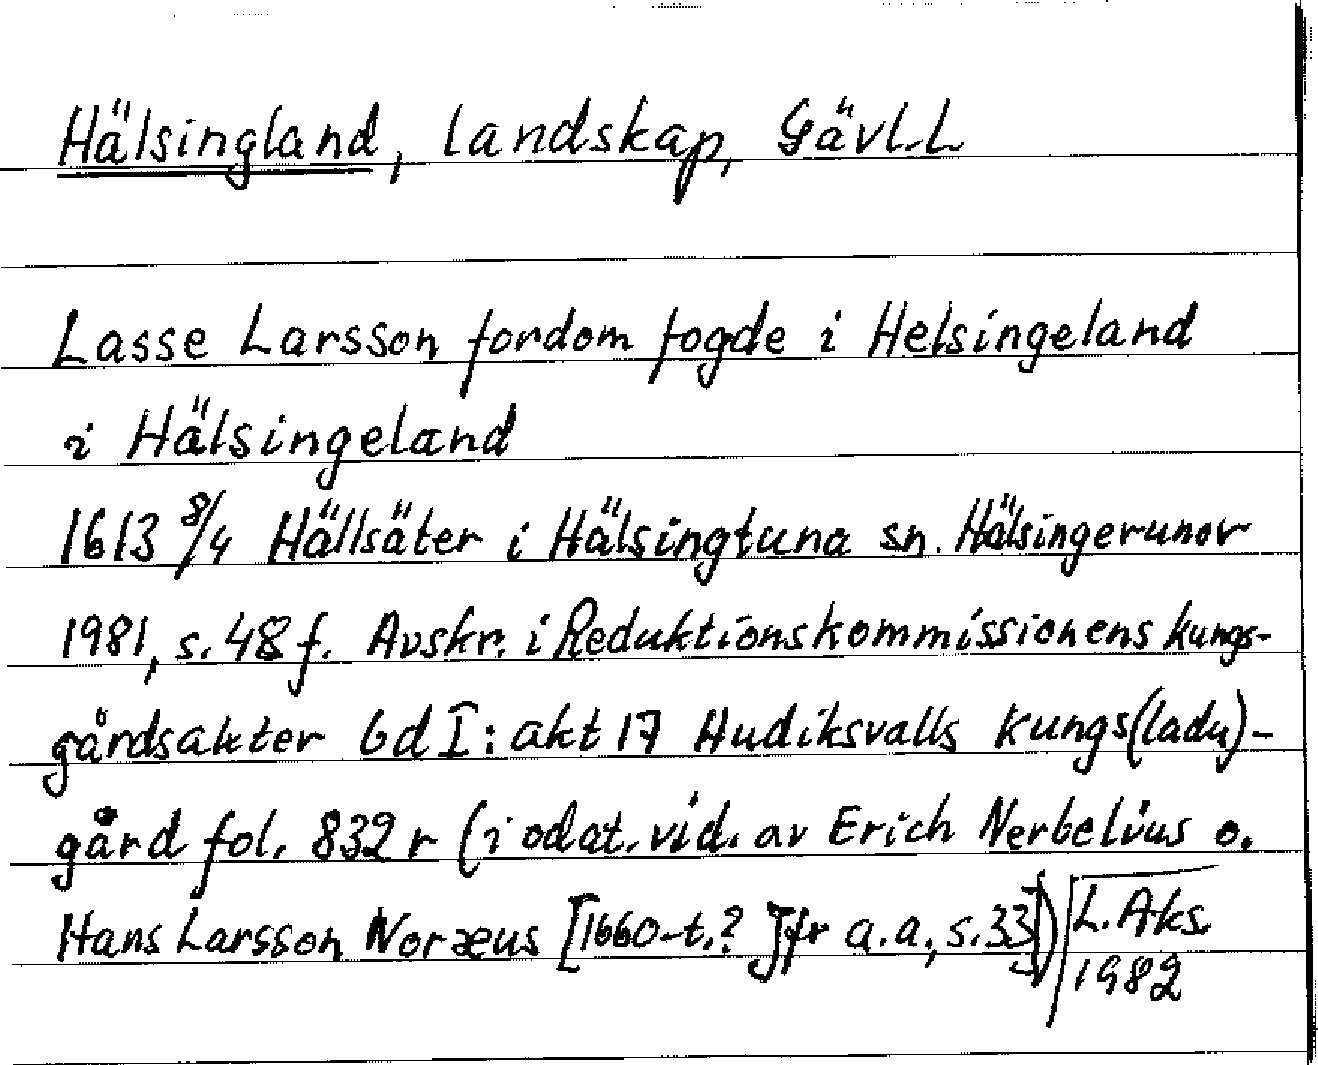 Hälsingland, landskap, GävlL
Lasse Larsson fordom fogde i Helsingeland
i Hälsingeland
1613 8/4 Hällsäter i Hälsingtuna sn. Hälsingerunor
1981, s. 48 f. Avskr. i Reduktionskommissionens kungs-
gårdsakter bd I: akt 17 Hudiksvalls kungs(ladu)-
gård fol. 832 r (i odat. vid. av Erich Nerbelius o.
Hans Larsson Noræus [1660-t.? Jfr a.a., s. 33])
L. Aks.
1982